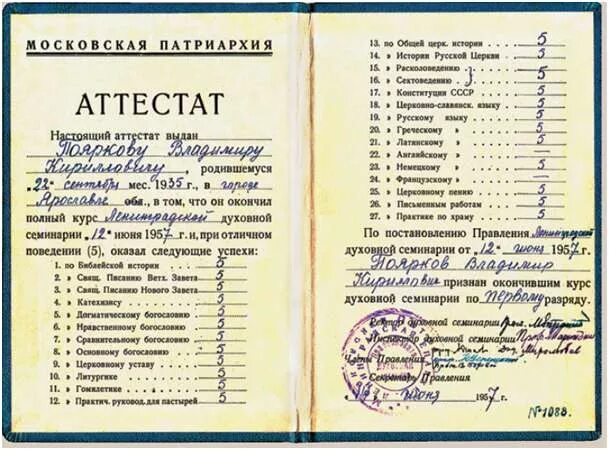 МОСКОВСКАЯ ПАТРИАРХИЯ
АТТЕСТАТ
Настоящий аттестат выдан
Пояркову Владимиру
Кирилловичу, родившемуся
„22" сентября мес. 1935 г., в городе
Ярославле обл., в том, что он окончил
полный курс Ленинградской духовной
семинарии „12" июня 1957 г. и, при отличном
поведении (5), оказал следующие успехи:
1. по Библейской истории 5
2. » Свящ. Писанию Ветх. Завета 5
3. » Свящ. Писанию Нового Завета 5
4. » Катехизису 5
5. » Догматическому богословию 5
6. » Нравственному богословию 5
7. » Сравнительному богословию 5
8. » Основному богословию 5
9. » Церковному уставу 5
10. » Литургике 5
11. » Гомилетике 5
12. » Практич. руковод. для пастырей 5
13. по Общей церк. истории 5
14. » Истории Русской Церкви 5
15. » Расколоведению
16. » Сектоведению 5
17. » Конституции СССР 5
18. » Церковно-славянск. языку 5
19. » Русскому языку 5
20. » Греческому » 5
21. » Латинскому » 5
22. » Английскому » —
23. » Немецкому » 5
24. » Французскому » —
25. » Церковному пению 5
26. » Письменным работам 5
27. » Практике по храму 5
По постановлению Правления Ленинградской
духовной семинарии от „12" июня 1957 г.
Поярков Владимир
Кириллович признан окончившим курс
духовной семинарии по первому разряду.
Ректор духовной семинарии
Инспектор духовной семинарии
Члены Правления
Секретарь Правления
июня 1957 г.
№1088.